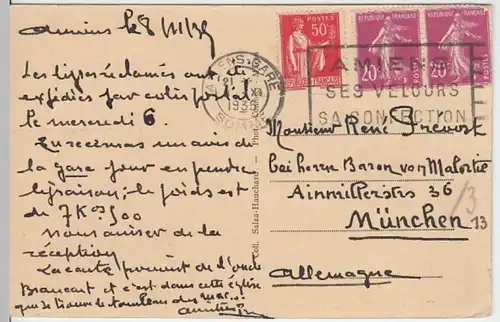 Amiens le 8/11/35
Les livres réclamés ont été
expédiés par colis postal
le mercredi 6.
Tu recevras un avis de
la gare pour en prendre
livraison; le poids est
de 7 Kos 500
Nous aviser de la
réception
La carte provient de l'oncle
Braucart et c'est dans cette église
que se trouve le tombeau des
amitiés
Coll. Salza-Hanchard - Phot.
AMIENS-GARE
XI
1935
SOMME
50c
POSTES
RÉPUBLIQUE FRANÇAISE
20c
RÉPUBLIQUE FRANÇAISE
20c
AMIENS
SES VELOURS
SA CONFECTION
Monsieur René Prévost
bei Herrn Baron von Malortie
Ainmillerstr 36
München 13
13
Allemagne